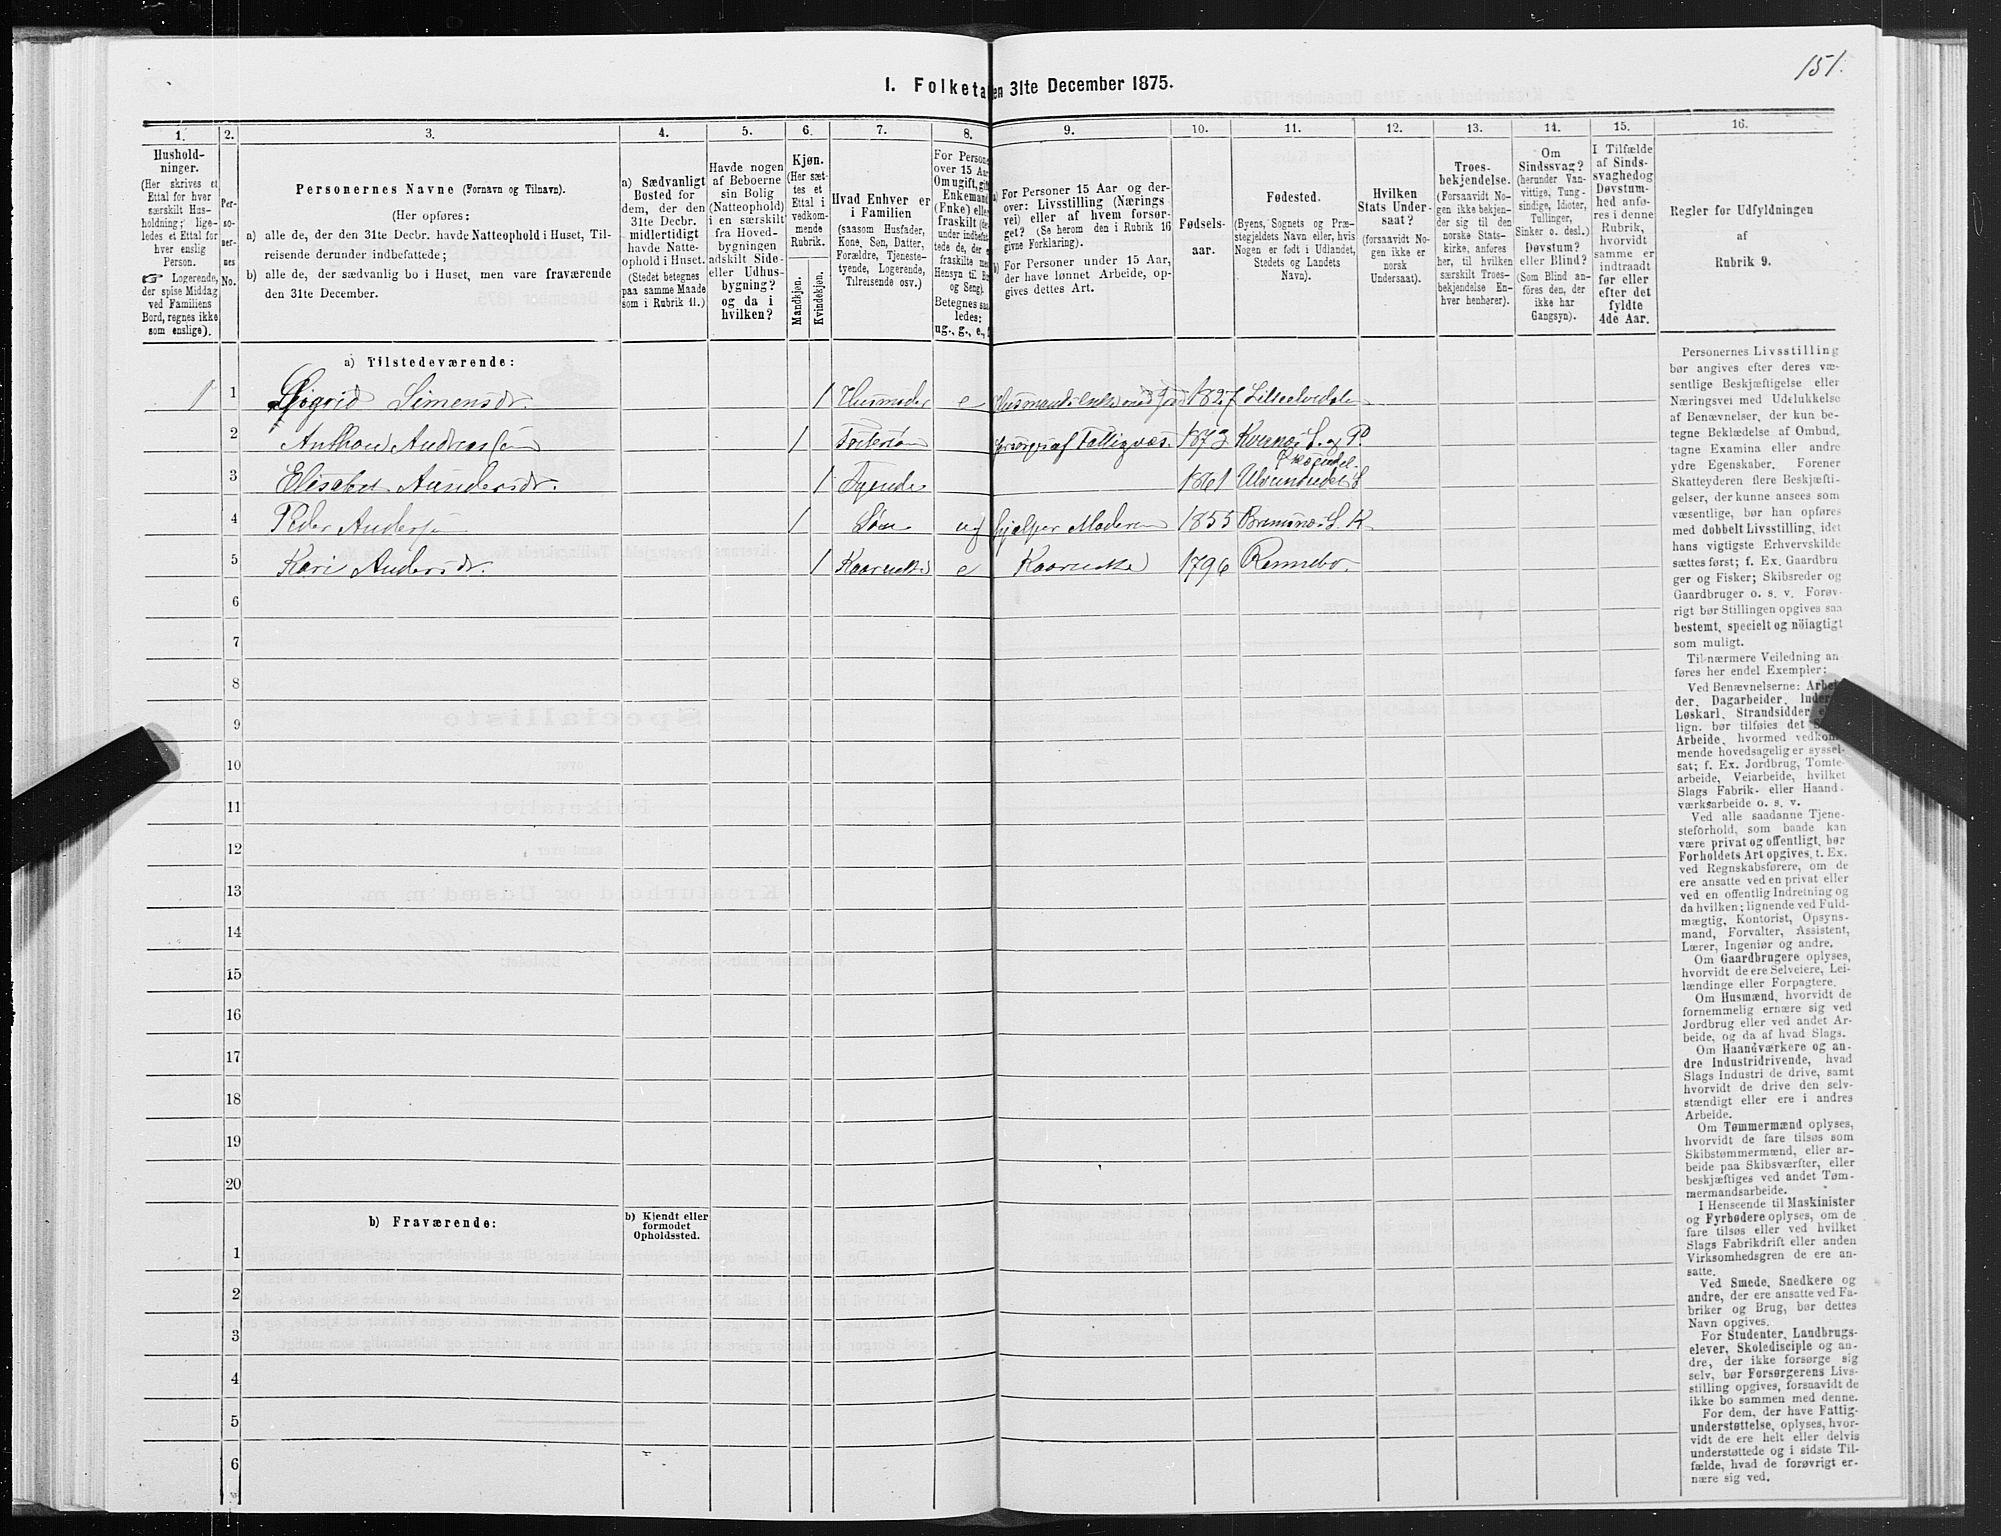 151.
1. Folketa en 31te December 1875.
1. 2. 3. 4. 5. 6. 7. 8. 9. 10. 11. 12. 13. 14. 15. 16.
Hushold-
ninger.
(Her skrives et
Ettal for hver
særskilt Hus-
holdning; lige-
ledes et Ettal for
hver enslig
Person.
☞ Logerende,
der spise Middag
ved Familiens
Bord, regnes ikke
som enslige).
Per-
so-
ner-
nes
No.
Personernes Navne (Fornavn og Tilnavn).
(Her opføres:
a) alle de, der den 31te Decbr. havde Natteophold i Huset, Til-
reisende derunder indbefattede;
b) alle de, der sædvanlig bo i Huset, men vare fraværende
den 31te December.
a) Sædvanligt
Bosted for
dem, der den
31te Decbr.
midlertidigt
havde Natte-
ophold i Huset.
(Stedet betegnes
paa samme Maade
som i Rubrik 11.)
Havde nogen
af Beboerne
sin Bolig
(Natteophold)
i en særskilt
fra Hoved-
bygningen
adskilt Side-
eller Udhus-
bygning?
og da i
hvilken?
Kjøn.
(Her sæt-
tes et
Ettal i
vedkom-
mende
Rubrik.
Mandkjøn.
Kvindekjøn.
Hvad Enhver er
i Familien
(saasom Husfader,
Kone, Søn, Datter,
Forældre, Tjeneste-
tyende, Logerende,
Tilreisende osv.)
For Persone
over 15 Aar
Om ugift, gift
Enkemand
(Enke) elle
fraskilt (de
under indbefat-
tede de, der e
fraskilte me
Hensyn til Bo
og Seng).
Betegnes saa
ledes:
ug., g., e.,
a) For Personer 15 Aar og der-
over: Livsstilling (Nærings
vei) eller af hvem forsør-
get? (Se herom den i Rubrik 16
givne Forklaring).
b) For Personer under 15 Aar,
der have lønnet Arbeide, op-
gives dettes Art.
Fødsels-
aar.
Fødested.
(Byens, Sognets og Præ-
stegjeldets Navn eller, hvis
Nogen er født i Udlandet,
Stedets og Landets
Navn).
Hvilken
Stats Under-
saat?
(forsaavidt No-
gen ikke er
norsk
Undersaat).
Troes-
bekjendelse.
(Forsaavidt No-
gen ikke bekjen-
der sig til den
norske Stats-
kirke, anføres
her, til hvilken
særskilt Troes-
bekjendelse En-
hver henhører).
Om
Sindssvag?
(herunder Van-
vittige, Tung-
sindige, Idioter,
Tullinger,
Sinker o. desl.)
Døvstum?
eller Blind?
(Som Blind an-
føres den, der
ikke har
Gangsyn).
I Tilfælde
af Sinds-
svaghed og
Døvstum-
hed anfø-
res i denne
Rubrik,
hvorvidt
samme er
indtraadt
før eller
efter det
fyldte
4de Aar.
Regler for Udfyldningen
af
Rubrik 9.
a) Tilstedeværende:
1 1 Sigrid Simensdr. 1 Husmoder e Husmands Enke med Jord 1827 Lilleelvedalen
2 Anthon Andreassen 1 Fostersøn forsørges af Fattigvæs. 1873 Kvernes S. og P.
Øksendal.
3 Elisabet Andersdr. 1 Tyende 1861 Ulvundeidet S
4 Peder Andersen 1 Søn ug hjælper Moderen 1855 Bremsnes S. K.
5 Kari Andersdr. 1 Kaarenke e Kaarenke 1796 Rennebo.
6
7
8
9
10
11
12
13
14
15
16
17
18
19
20
b) Fraværende:
b) Kjendt eller
formodet
Opholdssted.
1
2
3
4
5
6
Personernes Livsstilling
bør angives efter deres væ-
sentlige Beskjæftigelse eller
Næringsvei med Udelukkelse
af Benævnelser, der kun be-
tegne Beklædelse af Ombud,
tagne Examina eller andre
ydre Egenskaber. Forener
Skatteyderen flere Beskjæfti-
gelser, der kunne ansees som
væsentlige, bør han opføres
med dobbelt Livsstilling, idet
hans vigtigste Erhvervskilde
sættes først; f. Ex. Gaardbru
ger og Fisker; Skibsreder og
Gaardbruger o. s. v. Forøv-
rigt bør Stillingen opgives saa
bestemt, specielt og nöiagtigt
som muligt.
Til nærmere Veiledning an
føres her endel Exempler:
Ved Benævnelserne: Arbei
der, Dagarbeider, Inder
Løskarl, Strandsidder
lign. bør tilføies det
Arbeide, hvormed vedkom
mende hovedsagelig er syssel-
sat; f. Ex. Jordbrug, Tomte-
arbeide, Veiarbeide, hvilket
Slags Fabrik- eller Haand-
værksarbeide o. s. v.
Ved alle saadanne Tjene-
steforhold, som baade kan
være privat og offentligt, bør
Forholdets Art opgives, t. Ex.
ved Regnskabsførere, om de
ere ansatte ved en privat eller
ved en offentlig Indretning og
da hvilken; lignende ved Fuld-
mægtig, Kontorist, Opsyns-
mand, Forvalter, Assistent,
Lærer, Ingeniør og andre.
Om Gaardbrugere oplyses,
hvorvidt de ere Selveiere, Lei-
lændinge eller Forpagtere.
Om Husmænd, hvorvidt de
fornemmelig ernære sig ved
Jordbrug eller ved andet Ar-
beide, og da af hvad Slags.
Om Haandværkere og an-
dre Industridrivende, hvad
Slags Industri de drive, samt
hvorvidt de drive den selv-
stændigt eller ere i andres
Arbeide.
Om Tømmermænd oplyses,
hvorvidt de fare tilsøs som
Skibstømmermænd, eller ar-
beide paa Skibsværfter, eller
beskjæftiges ved andet Tøm-
mermandsarbeide.
I Henseende til Maskinister
og Fyrbødere oplyses, om de
fare tilsøs eller ved hvilket
Slags Fabrikdrift eller anden
Virksomhedsgren de ere an-
satte.
Ved Smede, Snedkere og
andre, der ere ansatte ved Fa-
briker og Brug, bør dettes
Navn opgives.
For Studenter, Landbrugs-
elever, Skoledisciple og an-
dre, der ikke forsørge sig
selv, bør Forsørgerens Livs-
stilling opgives, forsaavidt de
ikke bo sammen med denne.
For dem, der have Fattig-
understøttelse, oplyses, hvor-
vidt de ere helt eller delvis
understøttede og i sidste Til-
fælde, hvad de forøvrigt er-
nære sig ved.